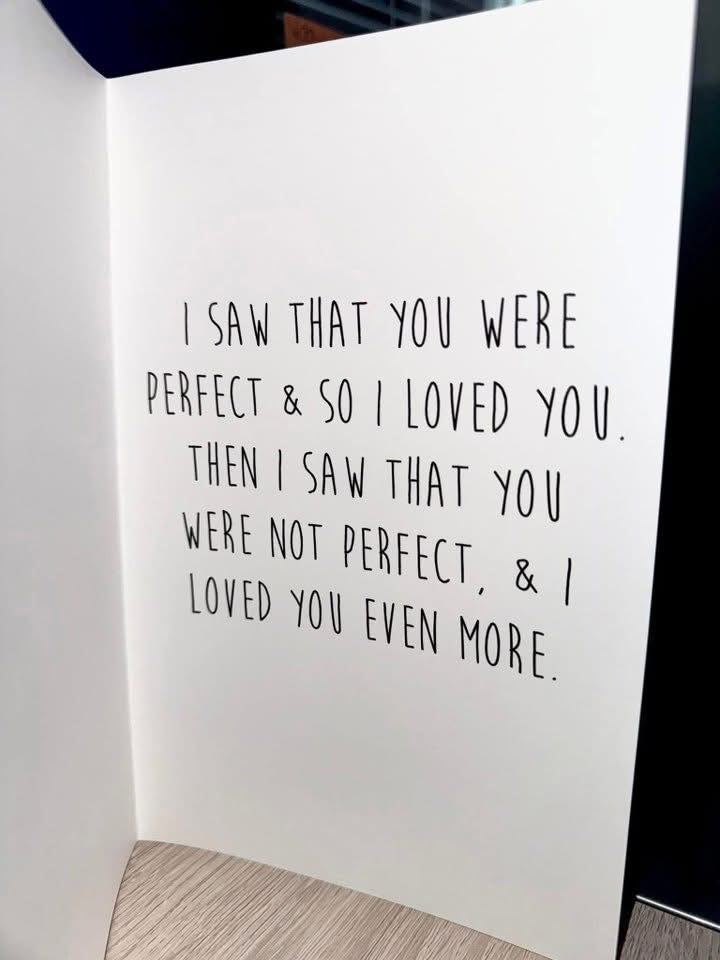 I SAW THAT YOU WERE
PERFECT & SO I LOVED YOU.
THEN I SAW THAT YOU
WERE NOT PERFECT, & I
LOVED YOU EVEN MORE.